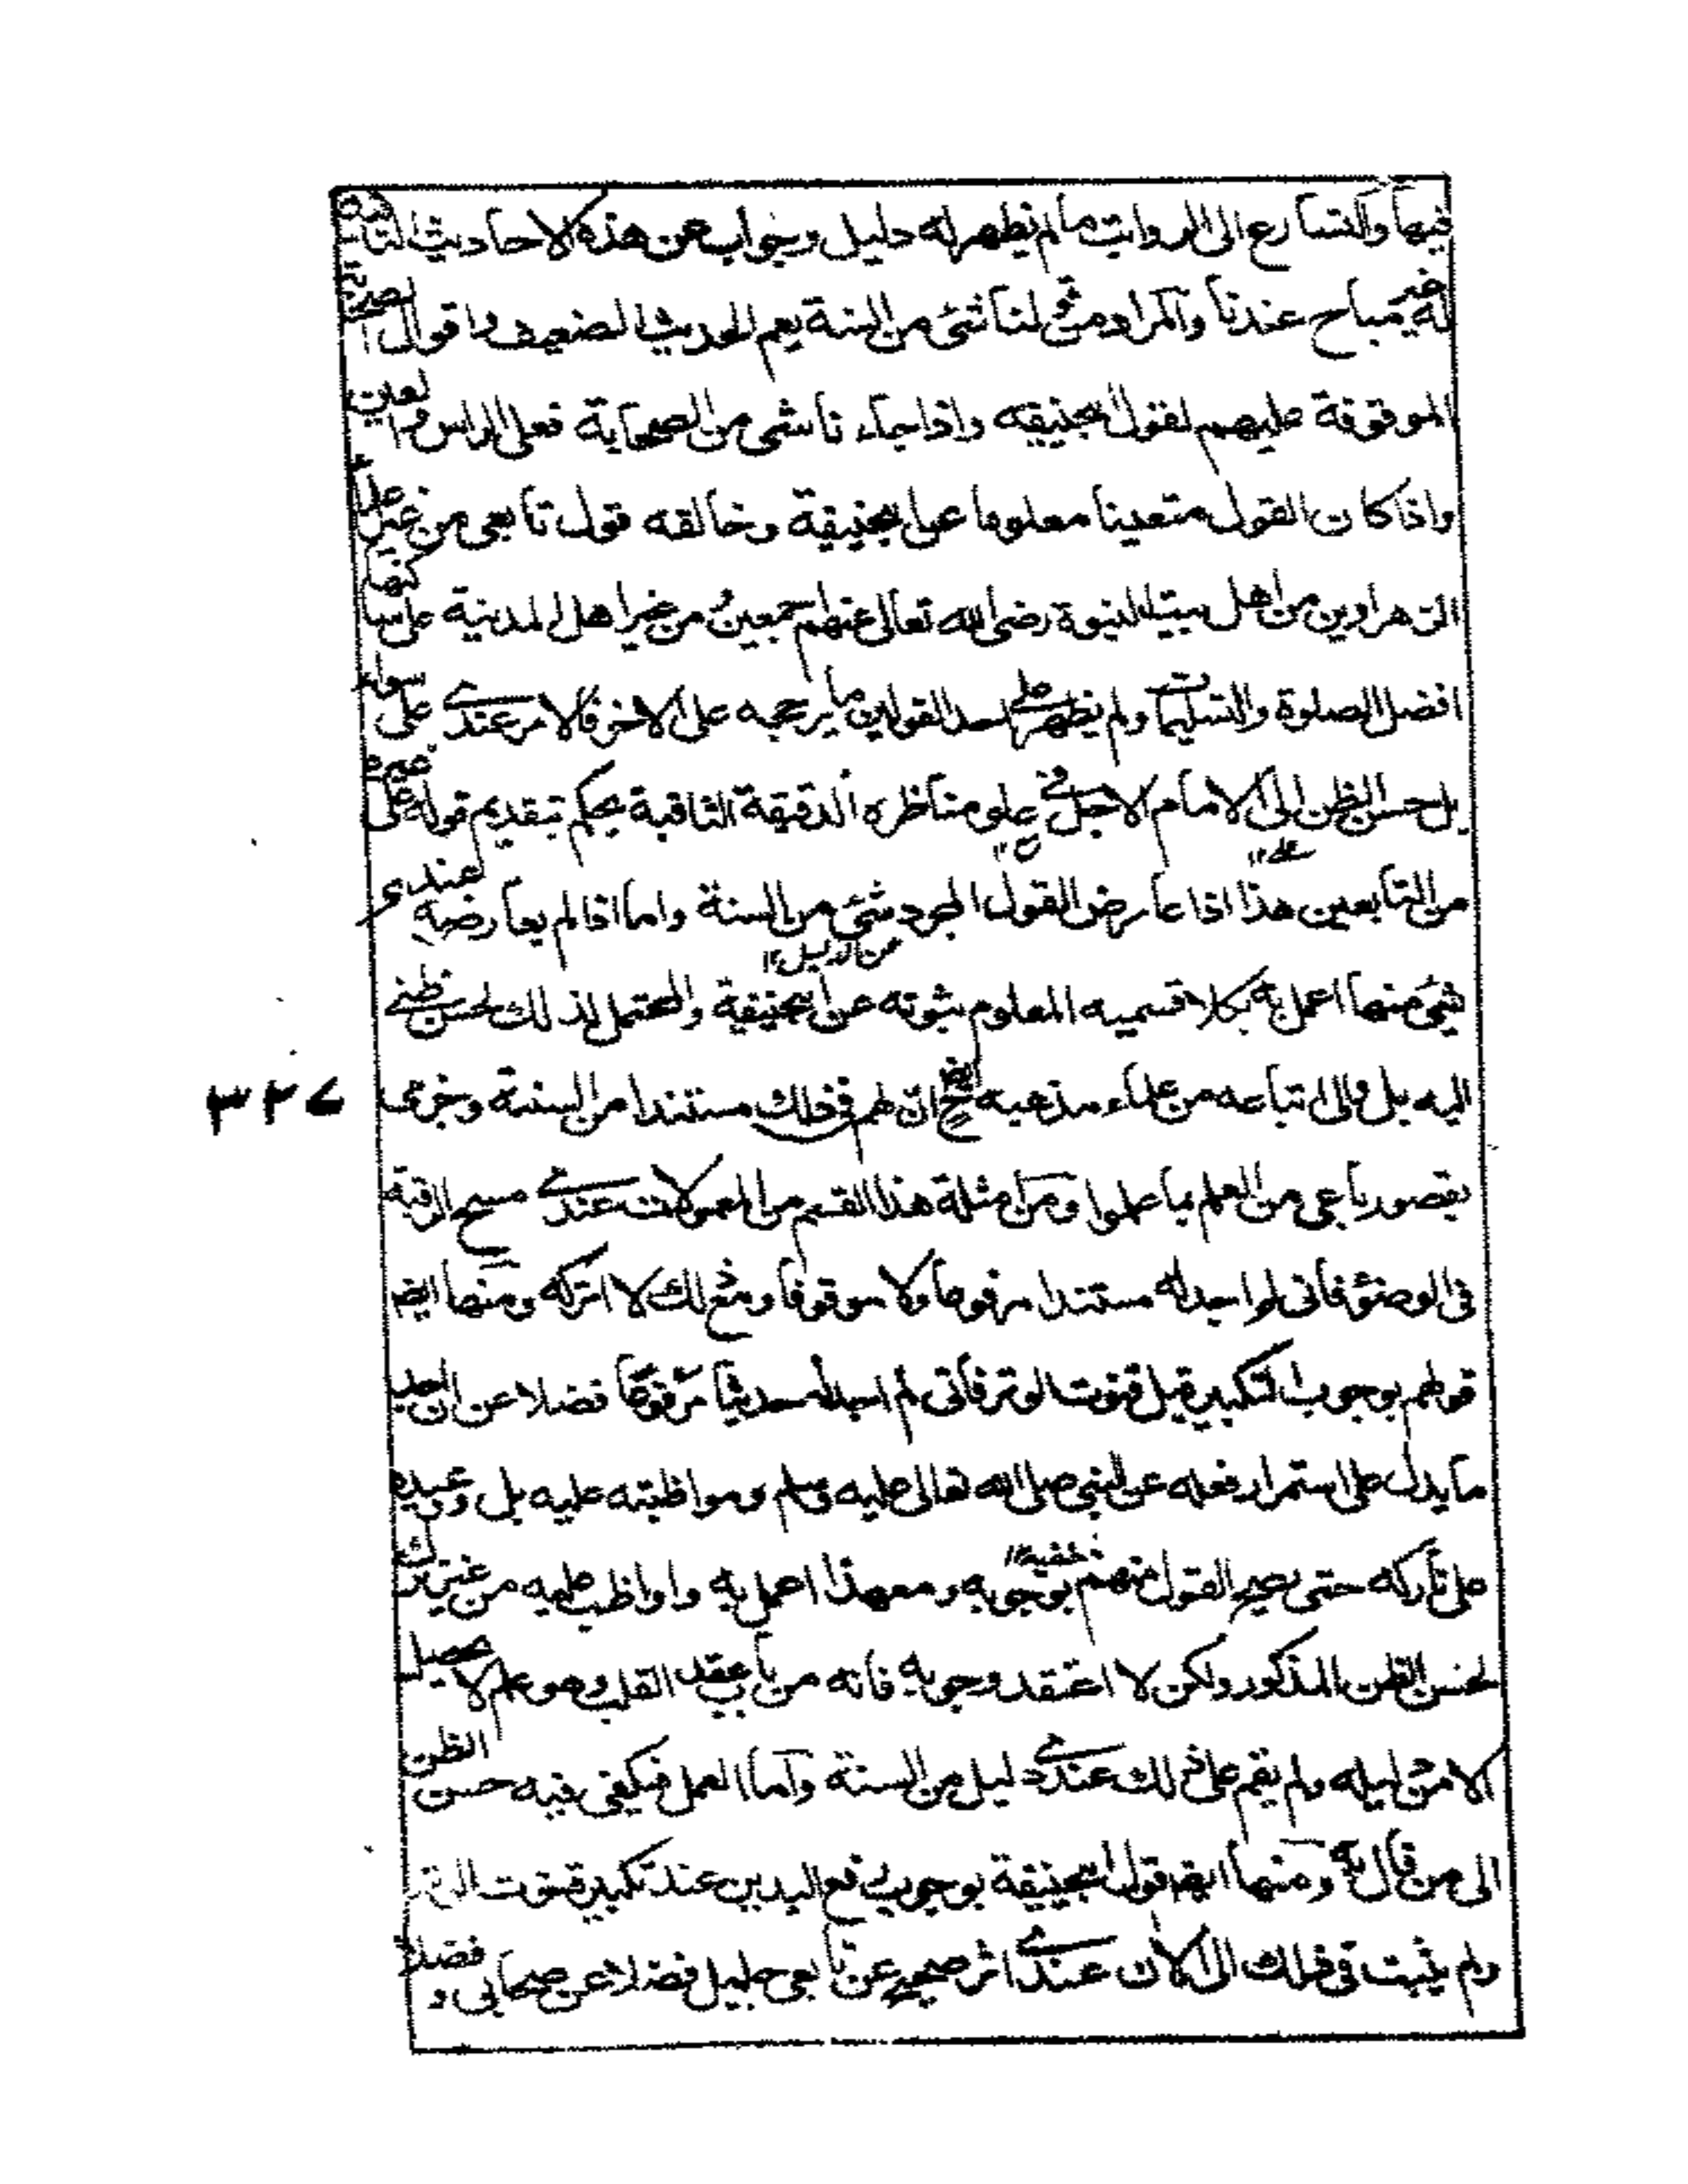 فيها والتسارع الى الروايت ما لم يظهر له دليل وجواب عن هذه الاحاديث الثابتة
له غير مباح عندنا والمراد من قولنا شئ من السنة يعم الحديث الضعيف واقوال الصحابة
الموقوفة عليهم لقول ابيحنيفه واذا جاءنا شئ من الصحابة فعلى الراس والعين
واذا كان القول متعينا معلوما عن ابيحنيفة وخالفه قول تابعى من غير علماء
الزهراويين من اهل بيت النبوة رضى الله تعالى عنهم اجمعين ومن غير اهل المدينة على ساكنها
افضل الصلوة والتسليمات ولم يظهر على احد القولين ما يرجحه على الاخر فالامر عندى على سواء
بل حسن الظن الى الامام الاجل فى علو مناظره الدقيقة الثاقبة يحكم بتقديم قوله على غيره
من التابعين هذا اذا عارض القول المجرد شئ من السنة واما اذا لم يعارضه عندى
شئ منها اعمل به بكلا قسميه المعلوم ثبوته عن ابيحنيفة والمحتمل لذلك لحسن ظنى
من الدليل ١٢
اليه بل والى اتباعه من علماء مذهبه ان لهم فى ذلك مستندا من السنة وجزمى
٣٢٧
بقصور باعى من العلم بما علموا ومن امثلة هذا القسم من المعمولات عندى مسح الرقبة
فى الوضوء فانى لم اجد له مستندا مرفوعا ولا موقوفا ومع ذلك لا اتركه ومنها ايضا
قولهم بوجوب التكبير قبل قنوت الوتر فانى لم اجد له حديثا مرفوعا فضلا عن ان اجد
ما يدل على استمرار فعله عن النبى صلى الله تعالى عليه وسلم ومواظبته عليه بل ووعيده
على تاركه حتى يصح القول منهم بوجوبه ومع هذا اعمل به واواظب عليه من غير ترك
لحسن الظن المذكور ولكن لا اعتقد وجوبه فانه من باب عقد القلب وهو علم لا يحصل
الا من دليله ولم يقم على ذلك عندى دليل من السنة واما العمل فيكفى فيه حسن الظن
الى من قال به ومنها ايضا قول ابيحنيفة بوجوب رفع اليدين عند تكبير قنوت الوتر
ولم يثبت فى ذلك الى الان عندى اثر صحيح عن تابعى جليل فضلا عن صحابى و فضلا